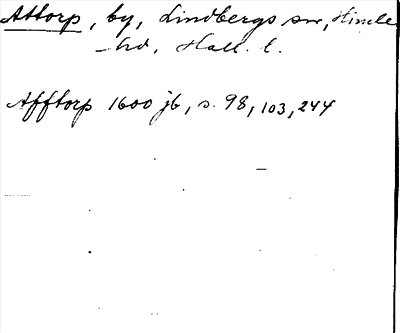 Attorp, by, Lindbergs sn, Himle
hd, Hall. l.
Afftorp 1600 jb, s. 98, 103, 244